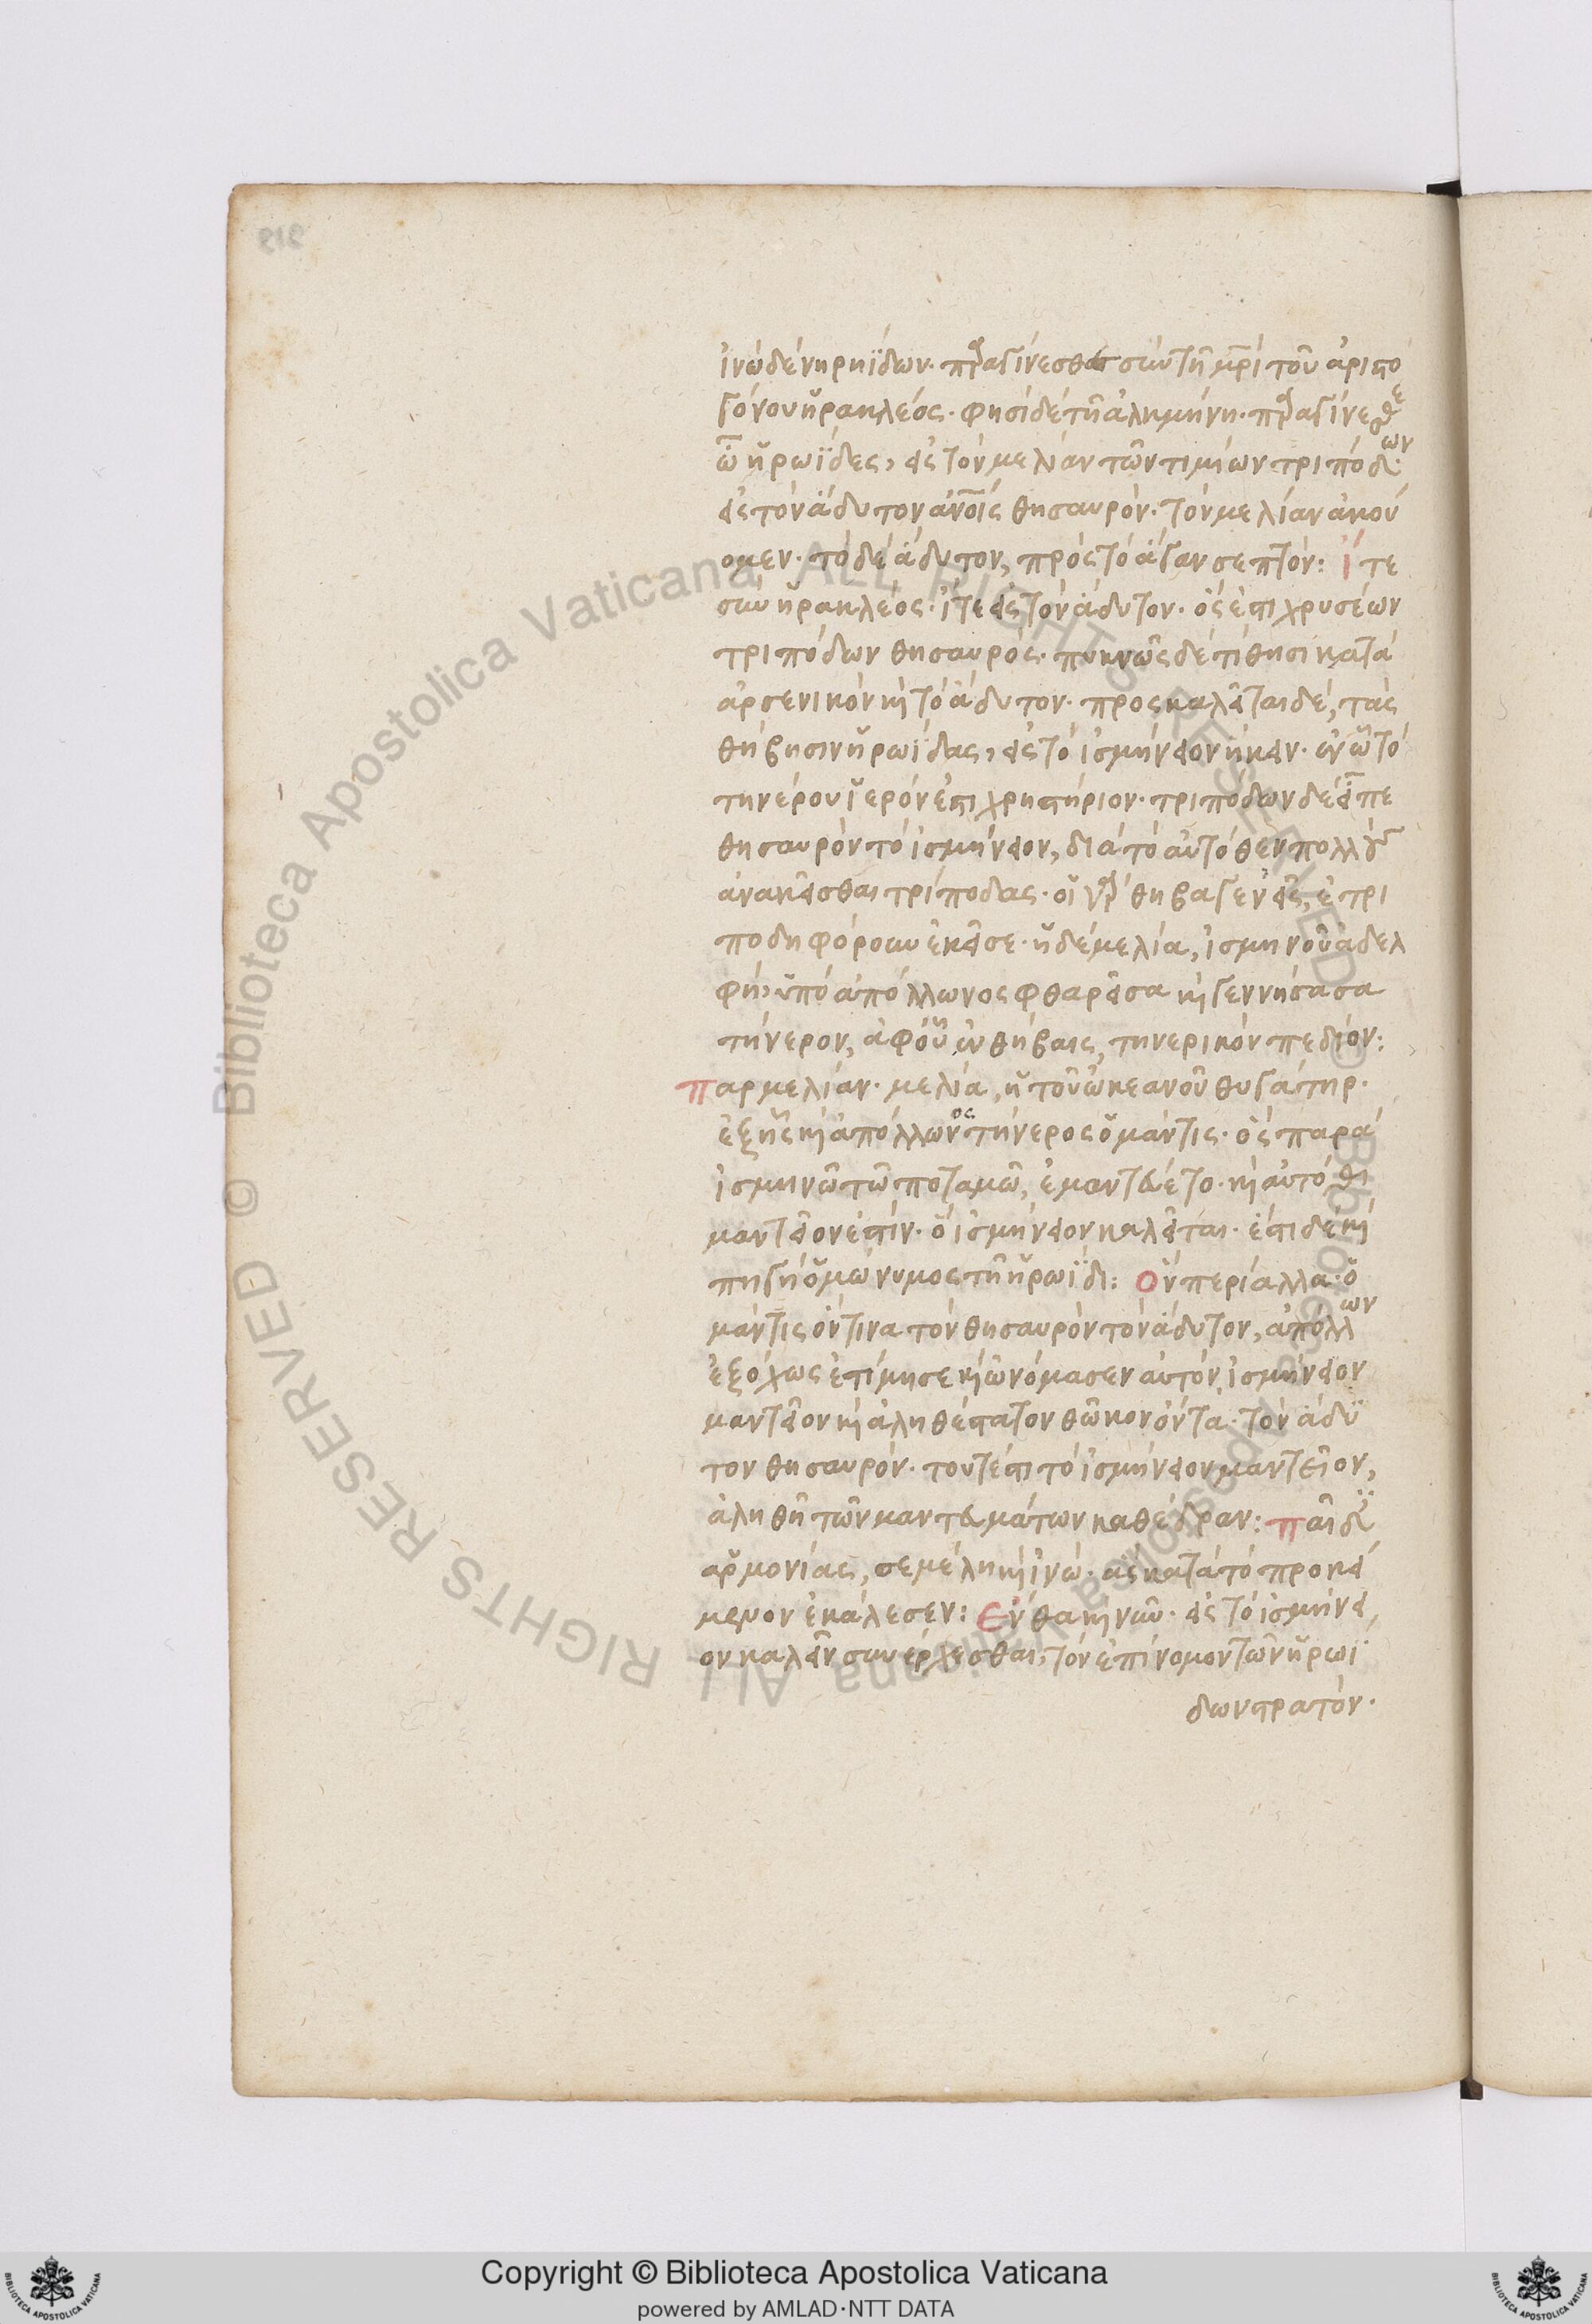 ἰνὼ δὲ νηρηΐδων· παραγίνεσθαι σὺν τῆ μρὶ τοῦ ἀριστο
γόνου ἡρακλέος· φησὶ δὲ τῆ ἀλκμήνη· παραγίνεσθε
ὦ ἡρωΐδες, εἰς τὸν μελίαν τῶν τιμίων τριπόδων
εἰς τὸν ἄδυτον ἀνοις θησαυρόν· τὸν μελίαν ἀκού
ομεν· τὸ δὲ ἄδυτον, πρὸς τὸ ἄγαν σεπτόν: ἴτε
σὺν ἡρακλέος· ἴτε εἰς τὸν ἄδυτον· ὅς ἐστι χρυσέων
τριπόδων θησαυρός· πυκνῶς δὲ τίθησι κατὰ
ἀρσενικὸν καὶ τὸ ἄδυτον· προςκαλεῖται δέ, τὰς
θήβησιν ἡρωΐδας, εἰς τὸ ἰσμήνειον ἥκειν· ἐν ὧ τὸ
τηνέρου ἱερόν ἐστι χρηστήριον· τριπόδων δὲ εἶπε
θησαυρὸν τὸ ἰσμήνειον, διὰ τὸ αὐτόθεν πολλοὺς
ἀνακεῖσθαι τρίποδας· οἱ γὰρ θηβαγενεῖς, ἐτρι
ποδηφόρουν ἐκεῖσε· ἡ δὲ μελία, ἰσμηνοῦ ἀδελ
φὴ, ὑπὸ ἀπόλλωνος φθαρεῖσα καὶ γεννήσασα
τήνερον, ἀφ οὗ ἐν θήβαις, τηνερικὸν πεδίον:
παρ μελίαν· μελία, ἡ τοῦ ὠκεανοῦ θυγάτηρ·
ἐξ ἧς καὶ ἀπόλλωνος τήνερος ὁ μάντις· ὃς παρὰ
ἰσμηνῶ τῶ ποταμῶ, ἐμαντεύετο· καὶ αὐτόθι
μαντεῖον ἐστίν· ὃ ἰσμήνειον καλεῖται· ἔστι δὲ καὶ
πηγὴ ὁμώνυμος τῆ ἡρωΐδι: Ὃν περίαλλα· ὁ
μάντις ὅντινα τὸν θησαυρὸν τὸν ἄδυτον, ἀπόλλων
ἐξόχως ἐτίμησε καὶ ὠνόμασεν αὐτὸν ἰσμήνειον
μαντεῖον καὶ ἀληθέστατον θῶκον ὄντα· τὸν ἄδυ
τον θησαυρόν· τουτέστι τὸ ἰσμήνειον μαντεῖον,
ἀληθῆ τῶν μαντευμάτων καθέδραν: παῖδες
ἁρμονίας, σεμέλη καὶ ἰνώ· ἃς κατὰ τὸ προκεί
μενον ἐκάλεσεν: Ἔνθα καὶ νῦν· εἰς τὸ ἰσμήνει
ον καλεῖν συνέρχεσθαι, τὸν ἐπίνομον τῶν ἡρωΐ
δων στρατόν·
Copyright © Biblioteca Apostolica Vaticana
powered by AMLAD·NTT DATA